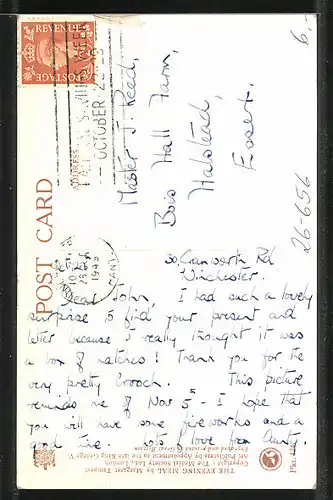 POSTAGE
REVENUE
OCTOBER 2
1949
POST CARD
Master J. Reed,
Bois Hall Farm,
Halstead,
Essex.
6.-
26-656
30 Cranworth Rd
Winchester.
Dear John, I had such a lovely
surprise to find your present and
letter because I really thought it was
a box of matches! Thank you for the
very pretty Brooch. This picture
reminds me of Nov 5 - I hope that
you will have some fireworks and a
good time. Lots of love from Aunty.
THE EVENING MEAL by Margaret Tempest
Copyright The Medici Society Ltd., London.
Art Publishers by Appointment to the late King George V.
Engraved and printed in Great Britain